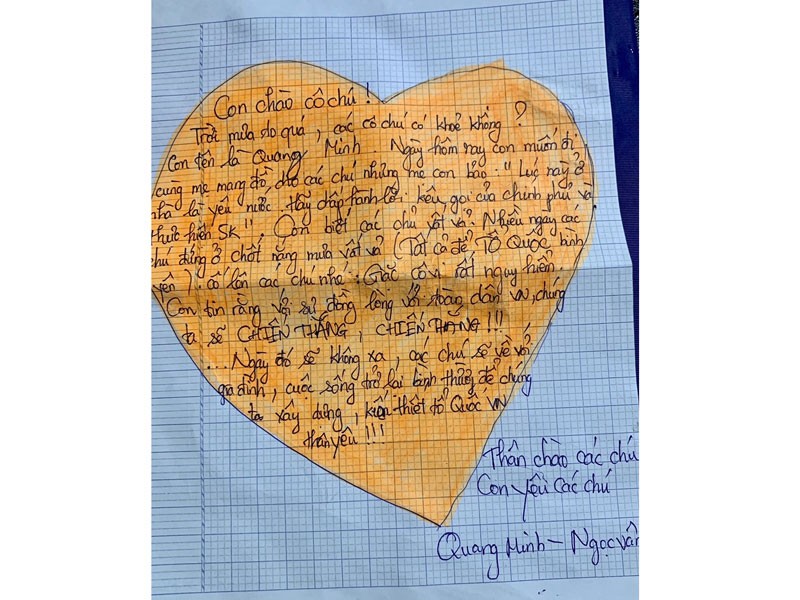 Con chào cô chú !
Trời mưa to quá, các cô chú có khoẻ không ?
Con tên là Quang Minh Ngày hôm nay con muốn đi
cùng mẹ mang đồ cho các chú nhưng mẹ con bảo : " Lúc này ở
nhà là yêu nước. Hãy chấp hành lời kêu gọi của chính phủ và
thực hiện 5K". Con biết các chú vất vả. Nhiều ngày các
chú đứng ở chốt nắng mưa vất vả (Tất cả để TỔ QUỐC bình
yên). cố lên các chú nhé : Giặc côvi rất nguy hiểm.
Con tin rằng với sự đồng lòng với toàn dân VN, chúng
ta sẽ CHIẾN THẮNG, CHIẾN THẮNG !!!
... Ngày đó sẽ không xa, các chú sẽ về với
gia đình, cuộc sống trở lại bình thường để chúng
ta xây dựng, kiến thiết tổ Quốc VN
thân yêu !!!
Thân chào các chú
Con yêu các chú
Quang Minh - Ngọc Vân